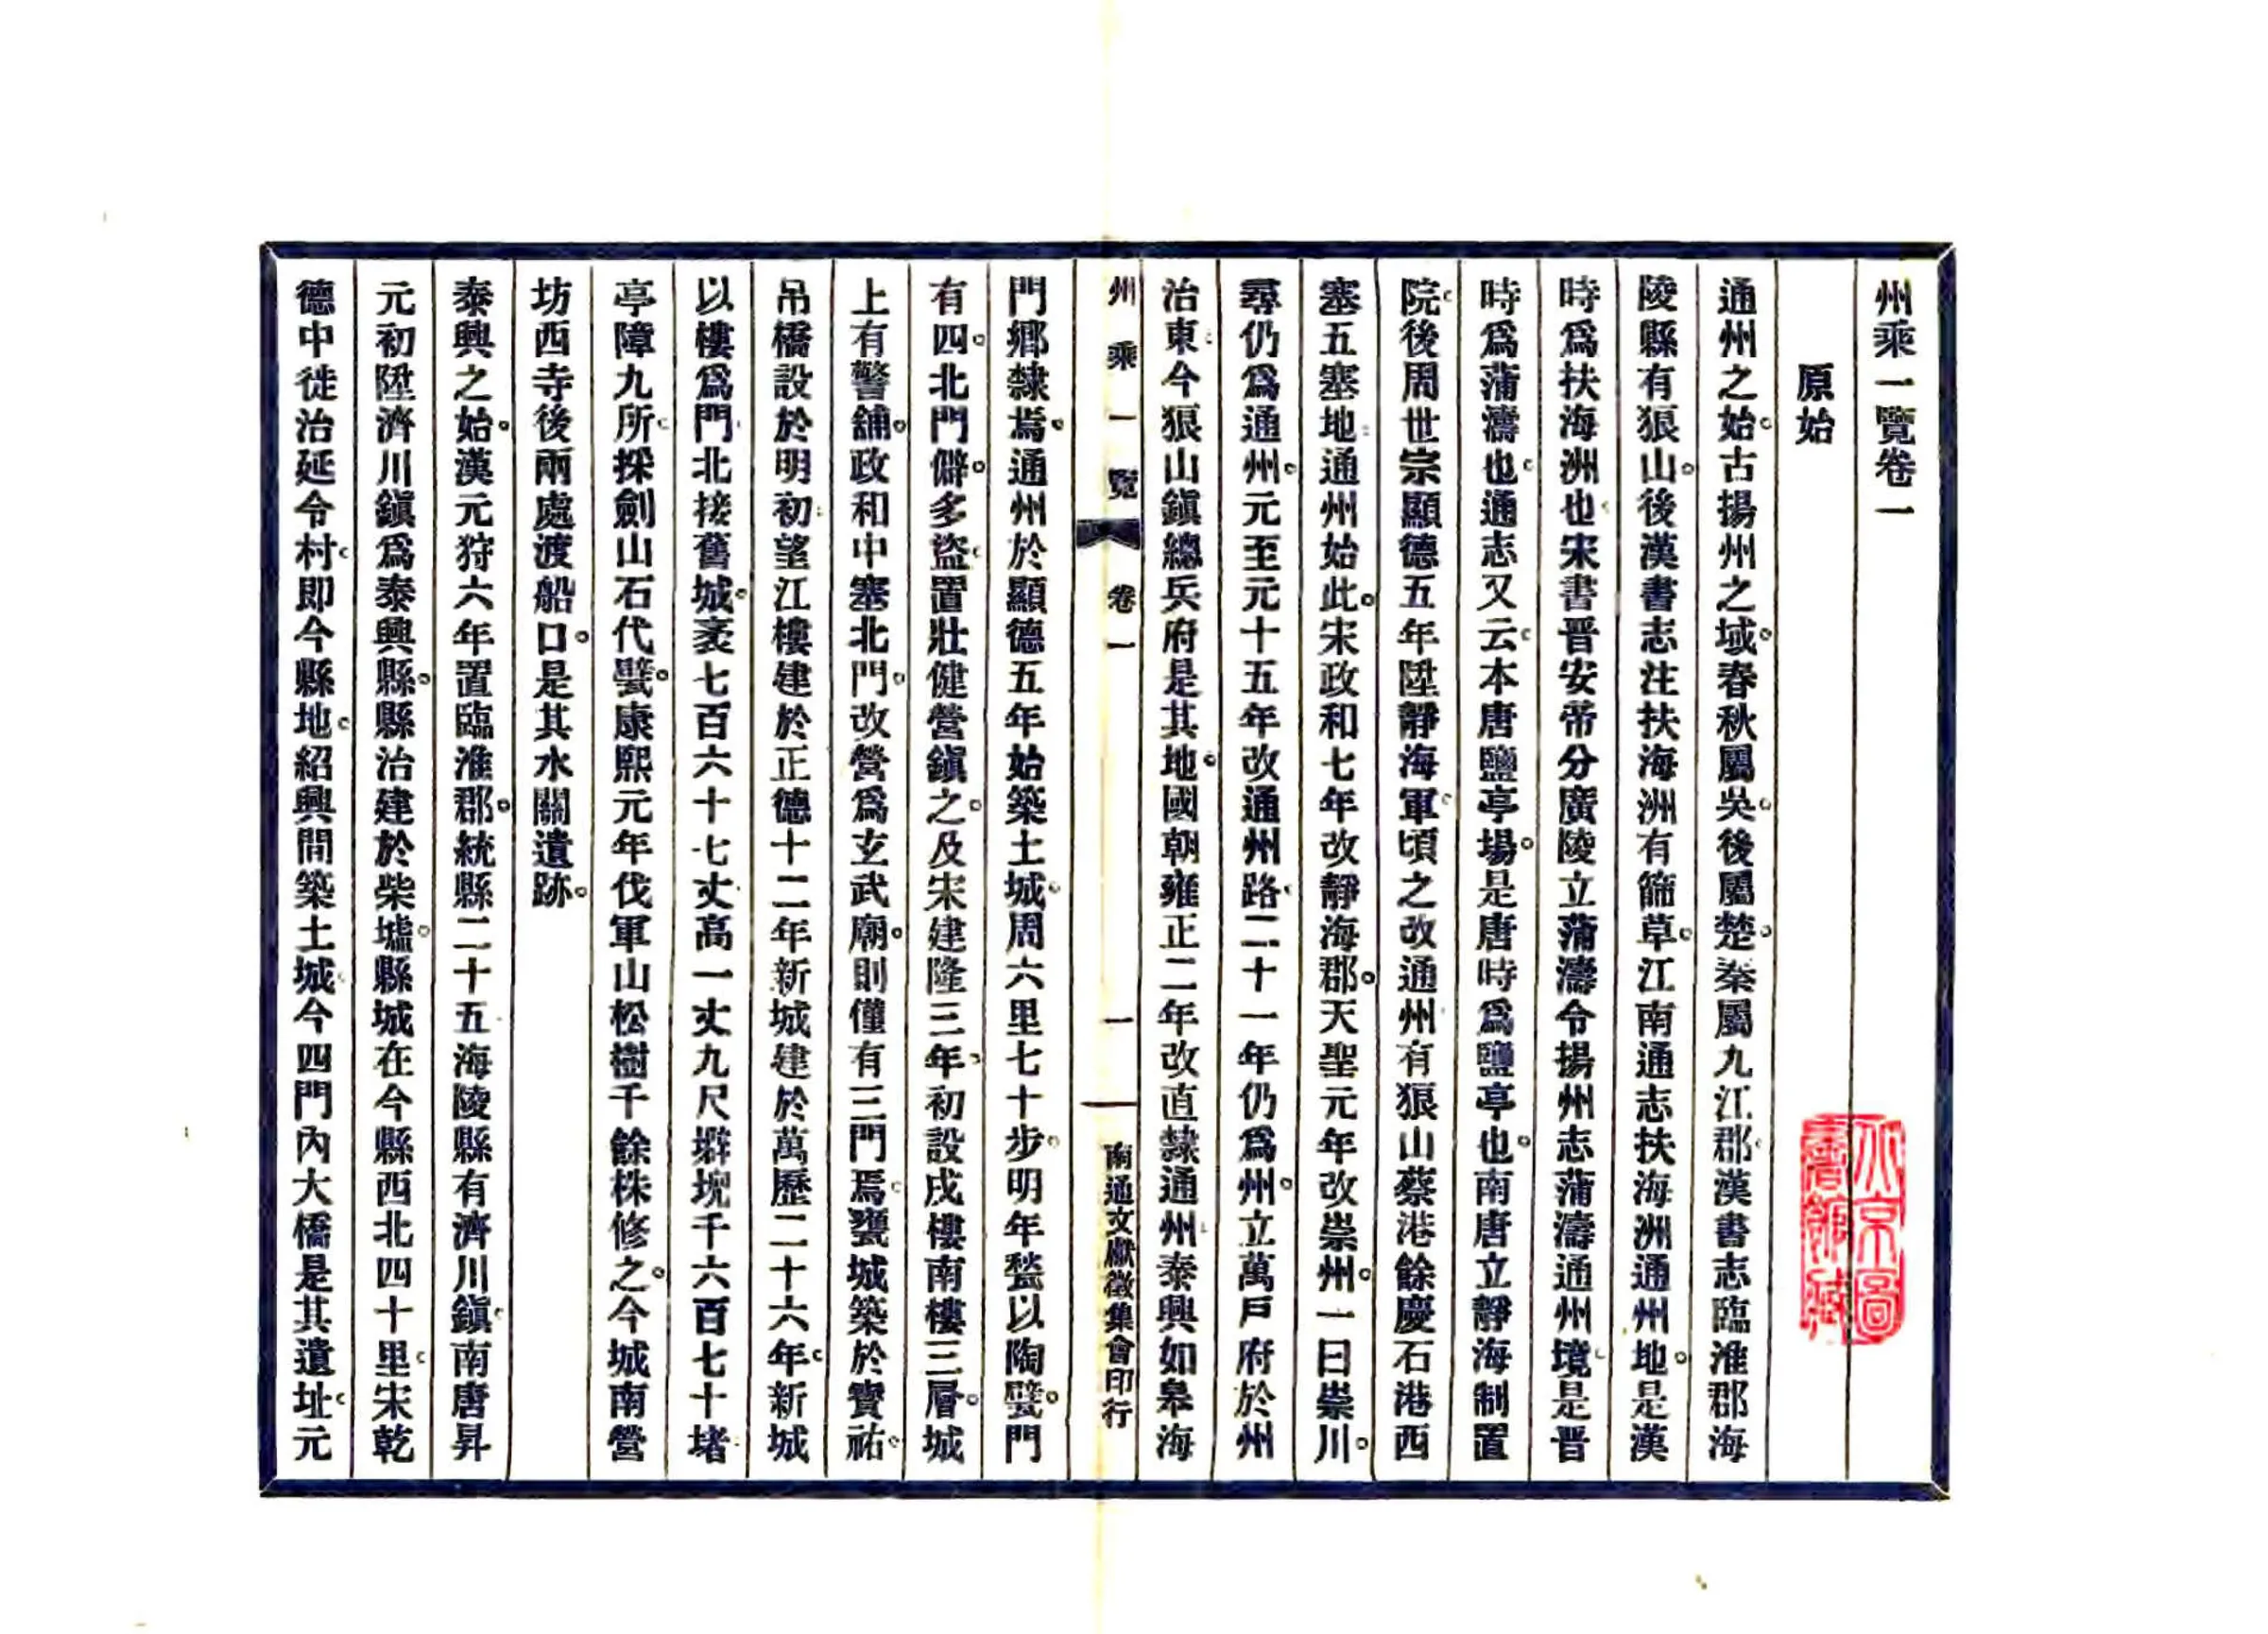 州乘一覽卷一
原始
通州之始。古揚州之域。春秋屬吳。後屬楚。秦屬九江郡。漢書志臨淮郡海
陵縣有狼山。後漢書志注扶海洲有篩草。江南通志扶海洲通州地。是漢
時爲扶海洲也。宋書晉安帝分廣陵立蒲濤令揚州志蒲濤通州境。是晉
時爲蒲濤也。通志又云。本唐鹽亭場。是唐時爲鹽亭也。南唐立靜海制置
院。後周世宗顯德五年陞靜海軍。頃之改通州。有狼山蔡港餘慶石港西
塞五塞地。通州始此。宋政和七年改靜海郡。天聖元年改崇州。一曰崇川。
尋仍爲通州。元至元十五年改通州路。二十一年仍爲州。立萬戶府於州
治東。今狼山鎭總兵府是其地。國朝雍正二年改直隸通州。泰興如皋海
州乘一覽 卷一 一 南通文獻徵集會印行
門鄉隸焉。通州於顯德五年始築土城。周六里七十步。明年甃以陶甓。門
有四。北門僻。多盜。置壯健營鎭之。及宋建隆三年。初設戍樓南樓三層。城
上有警舖。政和中塞北門。改營爲玄武廟。則僅有三門焉。甕城築於寶祐。
吊橋設於明初。望江樓建於正德十二年新城建於萬歷二十六年。新城
以樓爲門。北接舊城。袤七百六十七丈。高一丈九尺。壀堄千六百七十堵。
亭障九所。採劍山石代甓。康熙元年伐軍山松樹千餘株修之。今城南營
坊西寺後兩處渡船口。是其水關遺跡。
泰興之始。漢元狩六年置臨淮郡。統縣二十五。海陵縣有濟川鎭。南唐昇
元初陞濟川鎭爲泰興縣。縣治建於柴墟。縣城在今縣西北四十里。宋乾
德中徙治延令村。即今縣地。紹興間築土城。今四門內大橋是其遺址。元